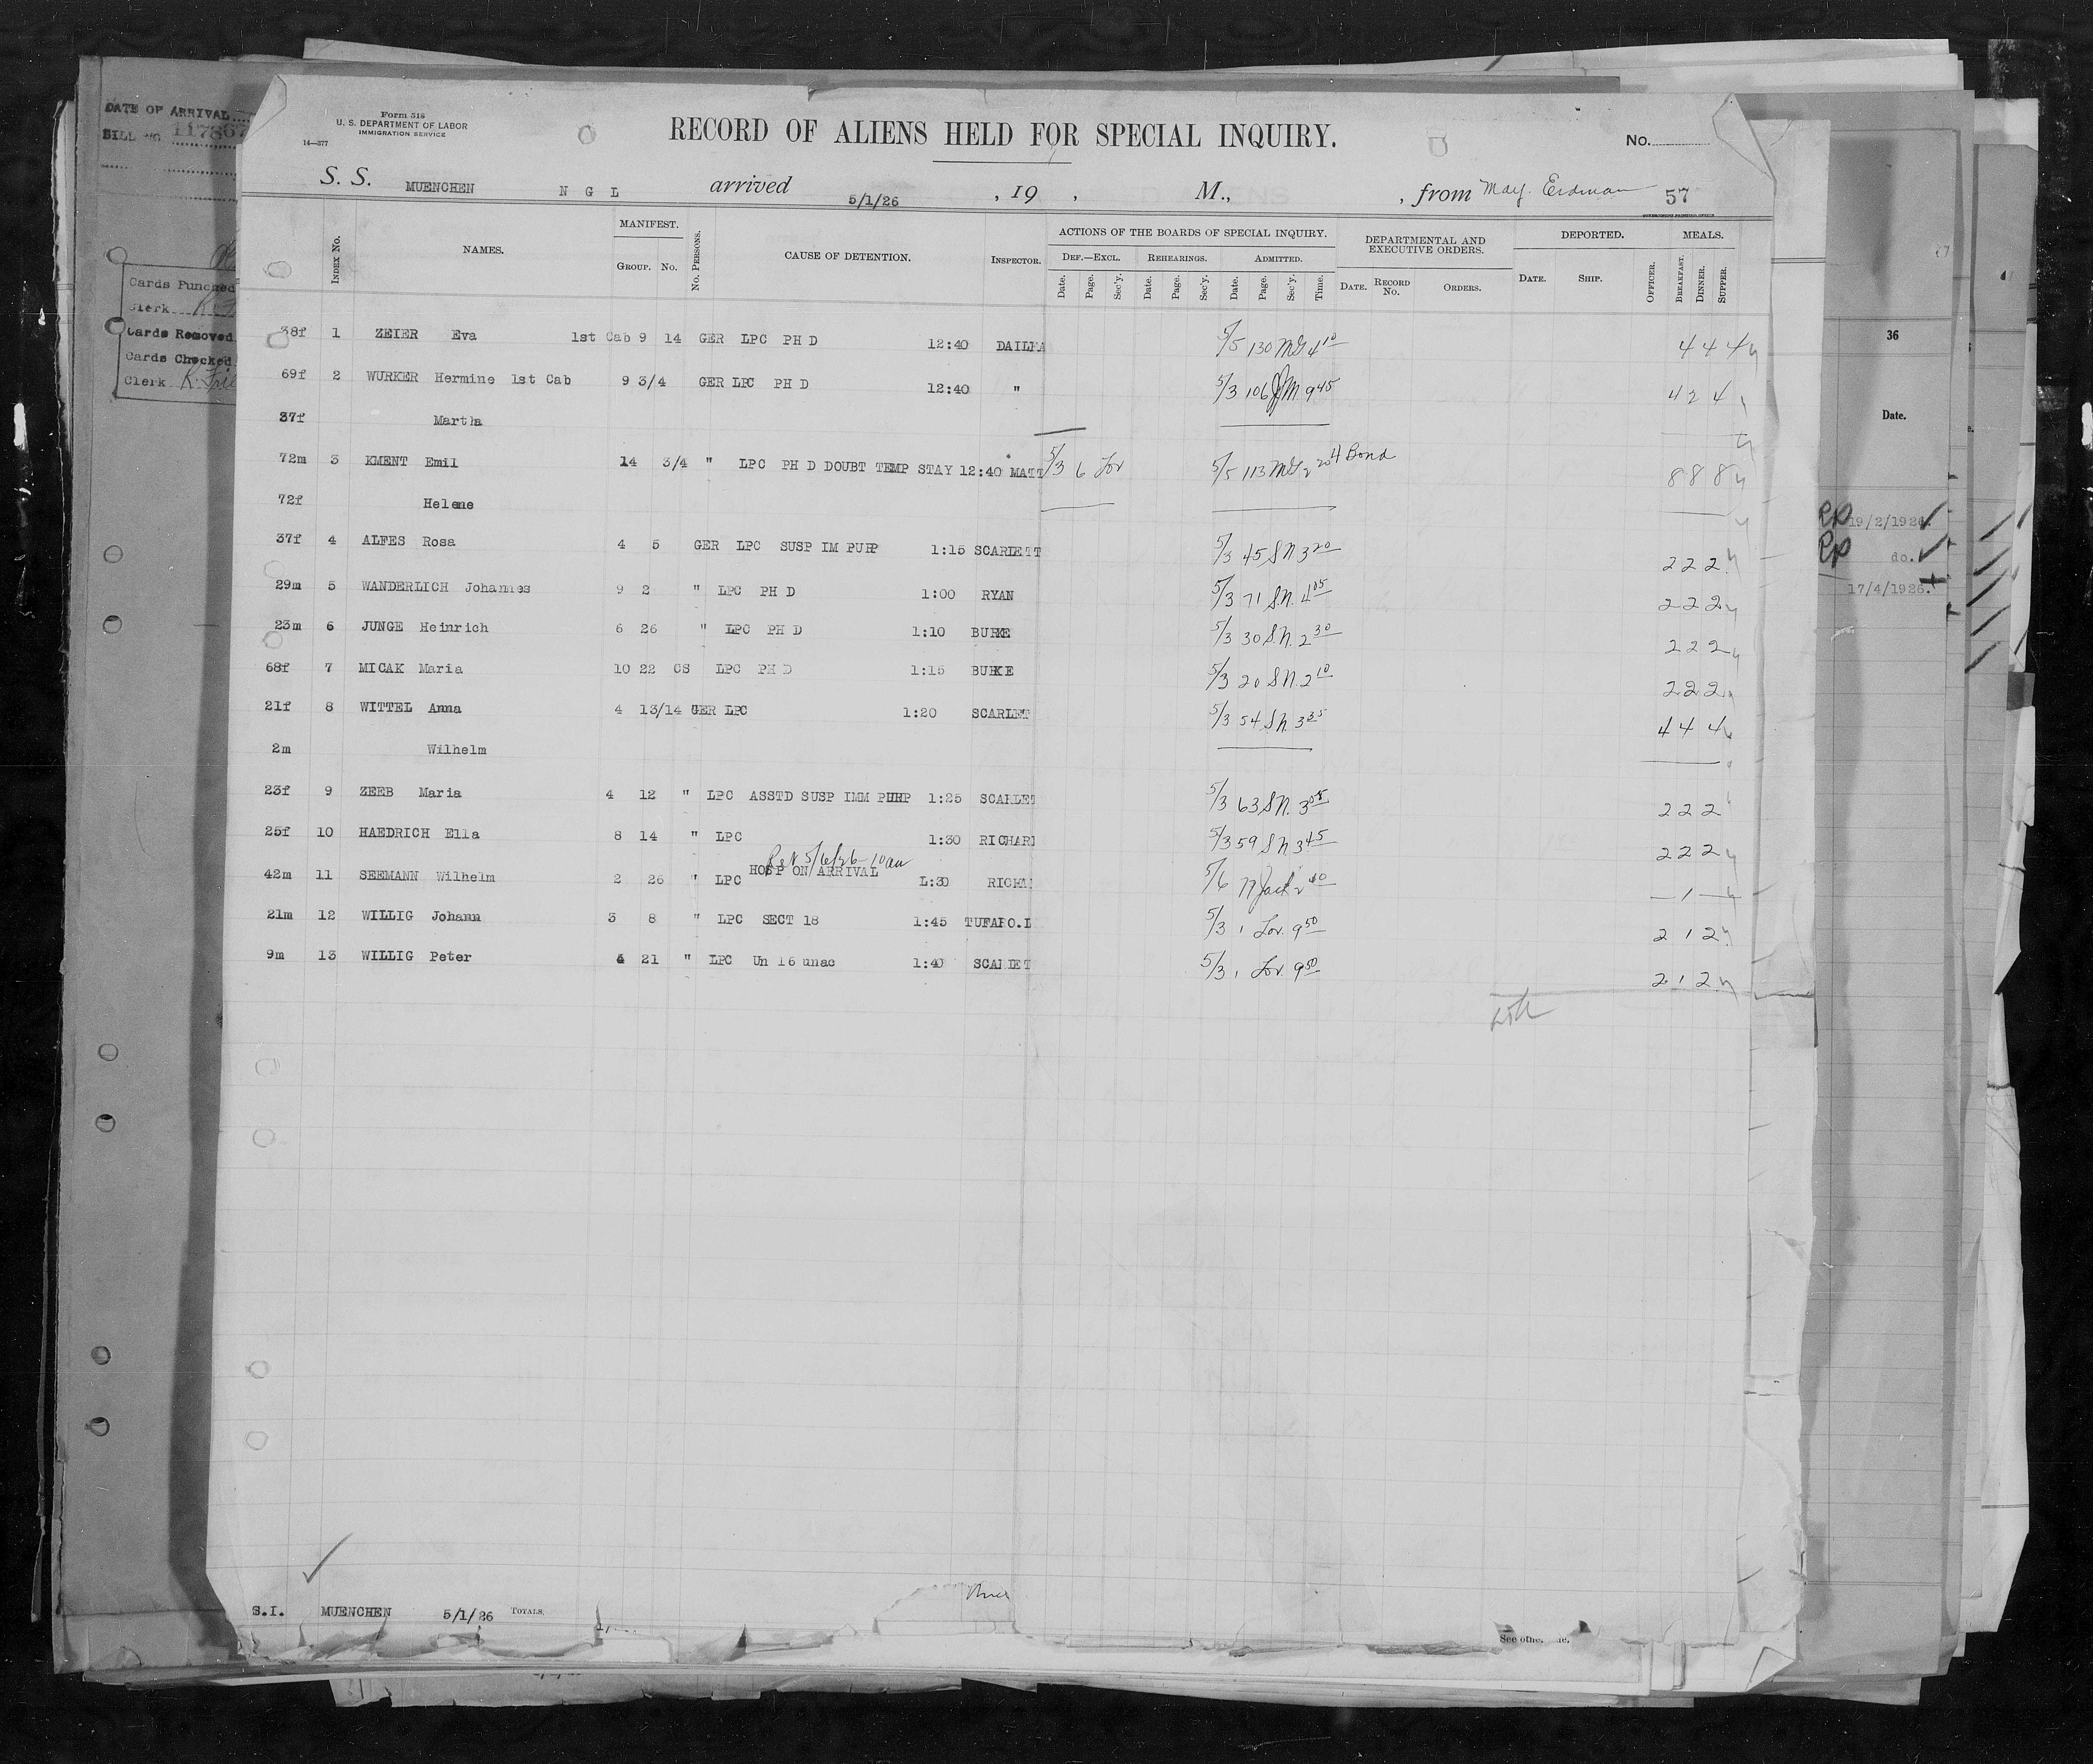 DATE OF ARRIVAL
BILL NO 117867
Cards Punched
Clerk
Cards Removed
Cards Checked
Clerk
Form 518
U. S. DEPARTMENT OF LABOR
IMMIGRATION SERVICE
14—377
RECORD OF ALIENS HELD FOR SPECIAL INQUIRY.
No.
S. S. MUENCHEN N G L arrived 5/1/26 , 19 , M., , from May. Erdman 57
INDEX No. NAMES. MANIFEST. GROUP. No. No. PERSONS. CAUSE OF DETENTION. INSPECTOR.
ACTIONS OF THE BOARDS OF SPECIAL INQUIRY. DEPARTMENTAL AND EXECUTIVE ORDERS. DEPORTED. MEALS.
DEF.—EXCL. REHEARINGS. ADMITTED.
Date. Page. Sec'y. Date. Page. Sec'y. Date. Page. Sec'y. Time. DATE. RECORD No. ORDERS. DATE. SHIP. OFFICER. BREAKFAST. DINNER. SUPPER.
38f 1 ZEIER Eva 1st Cab 9 14 GER LPC PH D 12:40 DAILEA 5/5 130 MG 4 10 4 4 4
69f 2 WURKER Hermine 1st Cab 9 3/4 GER LPC PH D 12:40 " 5/3 106 JM 9 45 4 2 4
37f Martha
72m 3 KMENT Emil 14 3/4 " LPC PH D DOUBT TEMP STAY 12:40 MATT 5/3 6 Lov 5/5 113 MG 2 20 4 Bond 8 8 8
72f Helene
37f 4 ALFES Rosa 4 5 GER LPC SUSP IM PURP 1:15 SCARLETT 5/3 45 SN 3 20 2 2 2
29m 5 WANDERLICH Johannes 9 2 " LPC PH D 1:00 RYAN 5/3 71 SN. 4 05 2 2 2
23m 6 JUNGE Heinrich 6 26 " LPC PH D 1:10 BURKE 5/3 30 SN. 2 30 2 2 2
68f 7 MICAK Maria 10 22 CS LPC PH D 1:15 BURKE 5/3 20 SN. 2 10 2 2 2
21f 8 WITTEL Anna 4 13/14 GER LPC 1:20 SCARLET 5/3 54 SN. 3 35 4 4 4
2m Wilhelm
23f 9 ZEEB Maria 4 12 " LPC ASSTD SUSP IMM PURP 1:25 SCARLET 5/3 63 SN. 3 05 2 2 2
25f 10 HAEDRICH Ella 8 14 " LPC 1:30 RICHAR 5/3 59 SN 3 45 2 2 2
Rel 5/6/26 10 am
HOSP ON ARRIVAL
42m 11 SEEMANN Wilhelm 2 26 " LPC 1:30 RICHA 5/6 2 40 — 1 —
21m 12 WILLIG Johann 3 8 " LPC SECT 18 1:45 TUFARO.L 5/3 1 Lov. 9 50 2 1 2
9m 13 WILLIG Peter 4 21 " LPC Un 16 unac 1:40 SCARLET 5/3 1 Lov. 9 50 2 1 2
S.I. MUENCHEN 5/1/26 TOTALS.
36
Date.
RP 19/2/1926.
RP do.
17/4/1926.